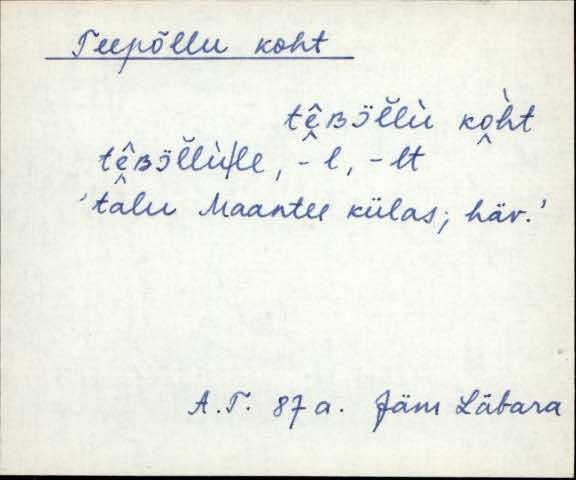 Teepõllu koht
tê̬ʙɔ̈̆llù kò̬ht
tê̬ʙɔ̈̆llù|le, -l, -lt
'talu Maantee külas; häv.'
A.T. 87a. Jäm Läbara